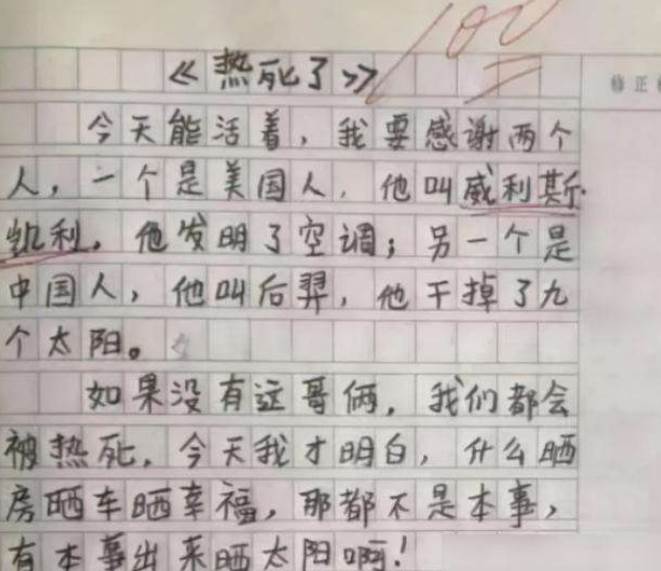 100
《热死了》
修正
今天能活着，我要感谢两个
人，一个是美国人，他叫威利斯
凯利，他发明了空调；另一个是
中国人，他叫后羿，他干掉了九
个太阳。
如果没有这哥俩，我们都会
被热死，今天我才明白，什么晒
房晒车晒幸福，那都不是本事，
有本事出来晒太阳啊！